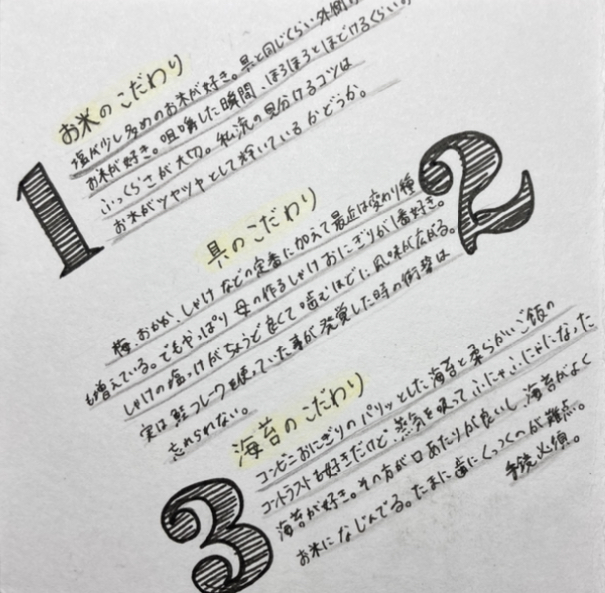 1
お米のこだわり
塩が少し多めのお米が好き。具と同じくらい外側
お米が好き。咀嚼した瞬間、ほろほろとほどけるくらいの
ふっくらさが大切。私流の見分けるコツは
お米がツヤツヤとして輝いているかどうか。
2
具のこだわり
梅、おかか、しゃけなどの定番に加えて最近は変わり種
も増えている。でもやっぱり母の作るしゃけおにぎりが1番好き。
しゃけの塩っけがちょうど良くて噛むほどに風味が広がる。
実は鮭フレークを使っていた事が発覚した時の衝撃は
忘れられない。
3
海苔のこだわり
コンビニおにぎりのパリッとした海苔と柔らかいご飯の
コントラストも好きだけど、蒸気を吸ってふにゃふにゃになった
海苔が好き。その方が口あたりが良いし、海苔がよく
お米になじんでる。たまに歯にくっつくのが難点。
手鏡必須。